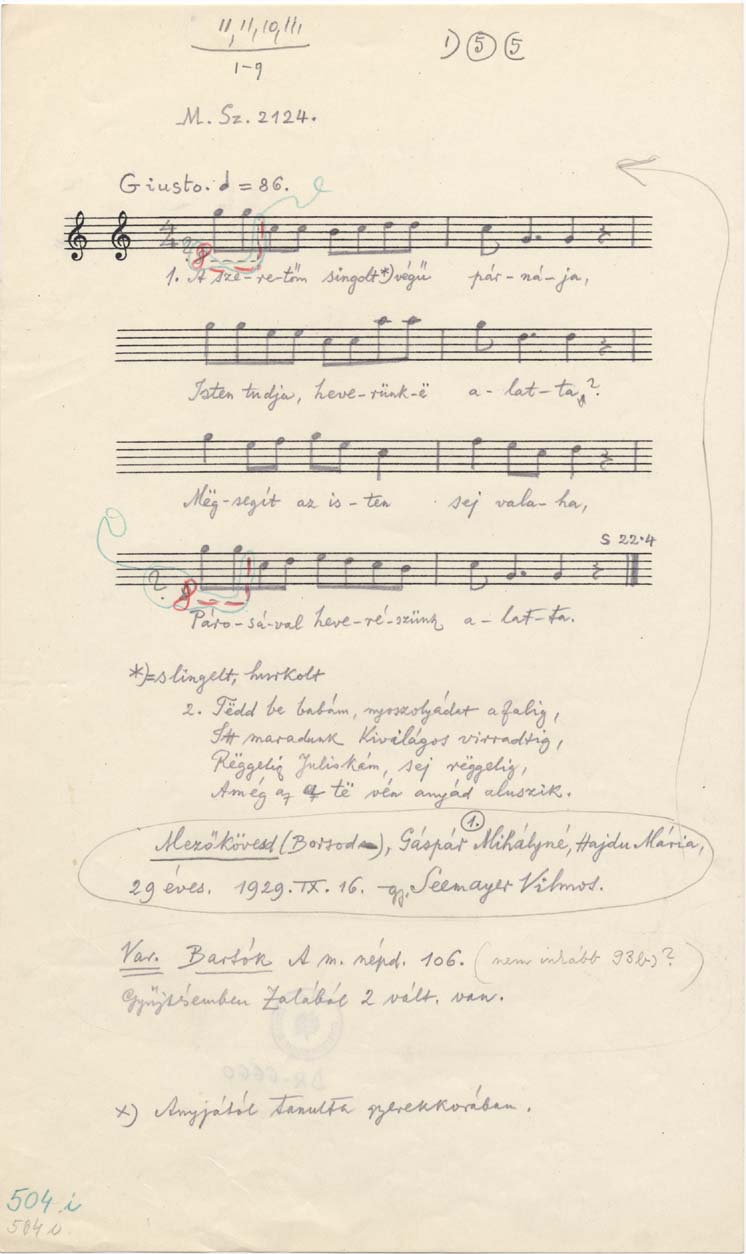 11, 11, 10, 11,
1-9
1) 5 5
M. Sz. 2124.
Giusto. = 86.
4
4
? 8
1. A szë-re-tőm singolt*) végű pár-ná-ja,
Isten tudja, heve-rünk-ë a-lat-ta?
Mëg-segít az is-ten sej vala-ha,
S 22·4
? 8
Páro-sá-val heve-ré-szünk a-lat-ta.
*)= slingelt, hurkolt
2. Tëdd be babám, nyoszolyádat a falig,
Itt maradunk Kivilágos virradtig,
Rëggelig Juliskám, sej rëggelig,
Amég az të vén anyád aluszik.
1.
Mezőkövesd (Borsod), Gáspár Mihályné, Hajdu Mária,
29 éves. 1929. IX. 16. - gy. Seemayer Vilmos.
Var. Bartók A m. népd. 106. (nem inkább 93b)?)
Gyüjtésemben Zalából 2 vált. van.
x) Anyjától tanulta gyerekkorában.
504 i
504